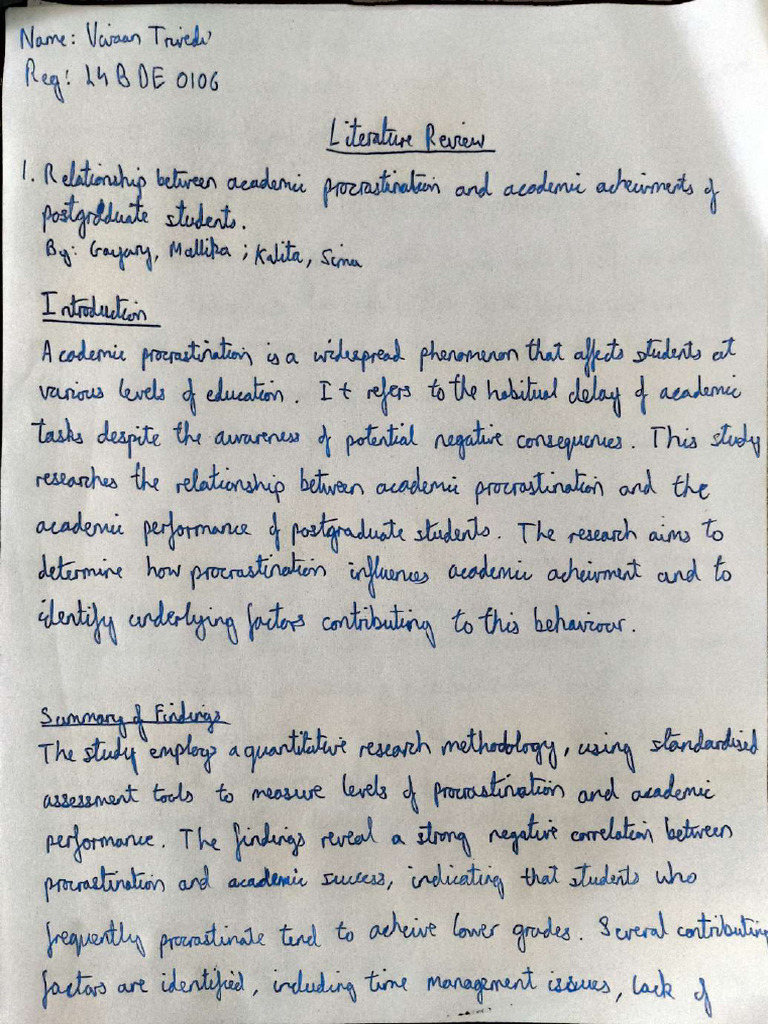 Name: Vivaan Trivedi
Reg: 24BDE0106
Literature Review
1. Relationship between academic procrastination and academic acheivments of
postgraduate students.
By: Gayary, Mallika ; Kalita, Sima
Introduction
Academic procrastination is a widespread phenomenon that affects students at
various levels of education. It refers to the habitual delay of academic
tasks despite the awareness of potential negative consequences. This study
researches the relationship between academic procrastination and the
academic performance of postgraduate students. The research aims to
determine how procrastination influences academic acheivment and to
identify underlying factors contributing to this behaviour.
Summary of Findings
The study employs a quantitative research methodology, using standardised
assessment tools to measure levels of procrastination and academic
performance. The findings reveal a strong negative correlation between
procrastination and academic success, indicating that students who
frequently procrastinate tend to acheive lower grades. Several contributing
factors are identified, including time management issues, lack of